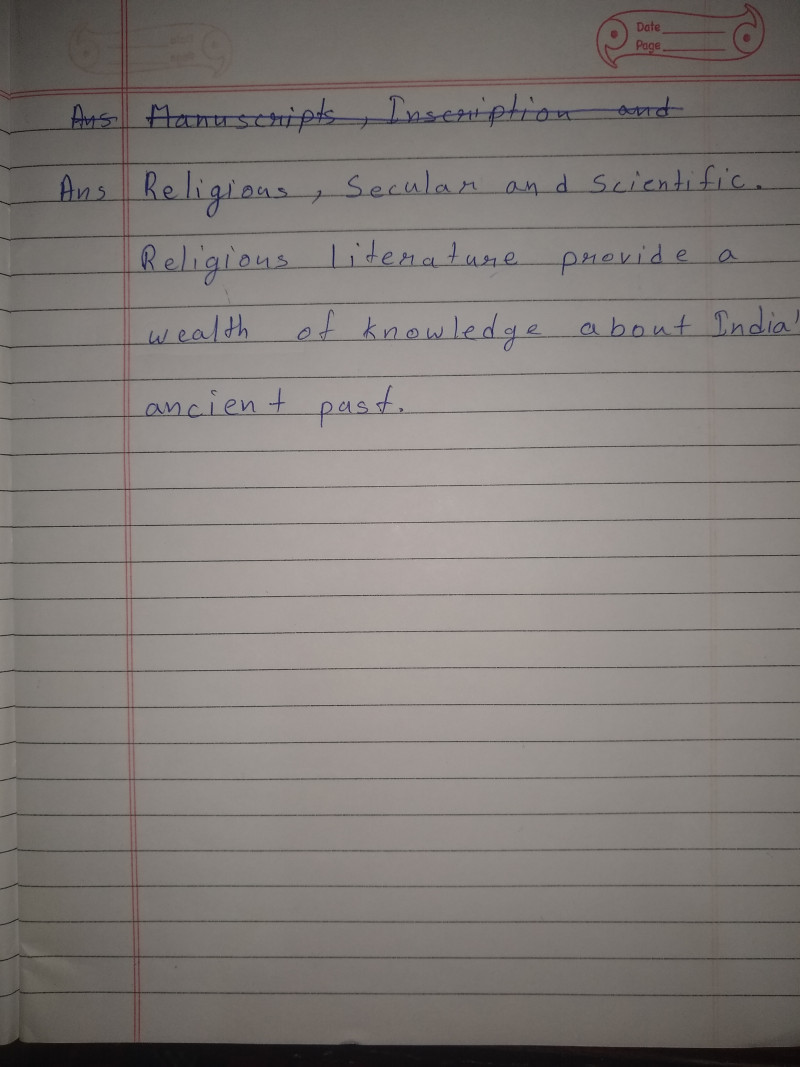 Date
Page
Ans Manuscripts, Inscription and
Ans Religious, Secular and Scientific.
Religious literature provide a
wealth of knowledge about India'
ancient past.